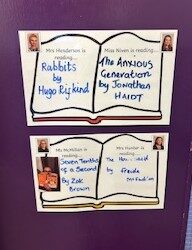 Mrs Henderson is reading...
Rabbits
by
Hugo Rifkind
Miss Niven is reading...
The Anxious
Generation
by Jonathan
HAIDT
Ms McMillan is reading...
Seven Tenths
of a Second
By Zak
Brown
Mrs Hunter is reading...
The
by Freida